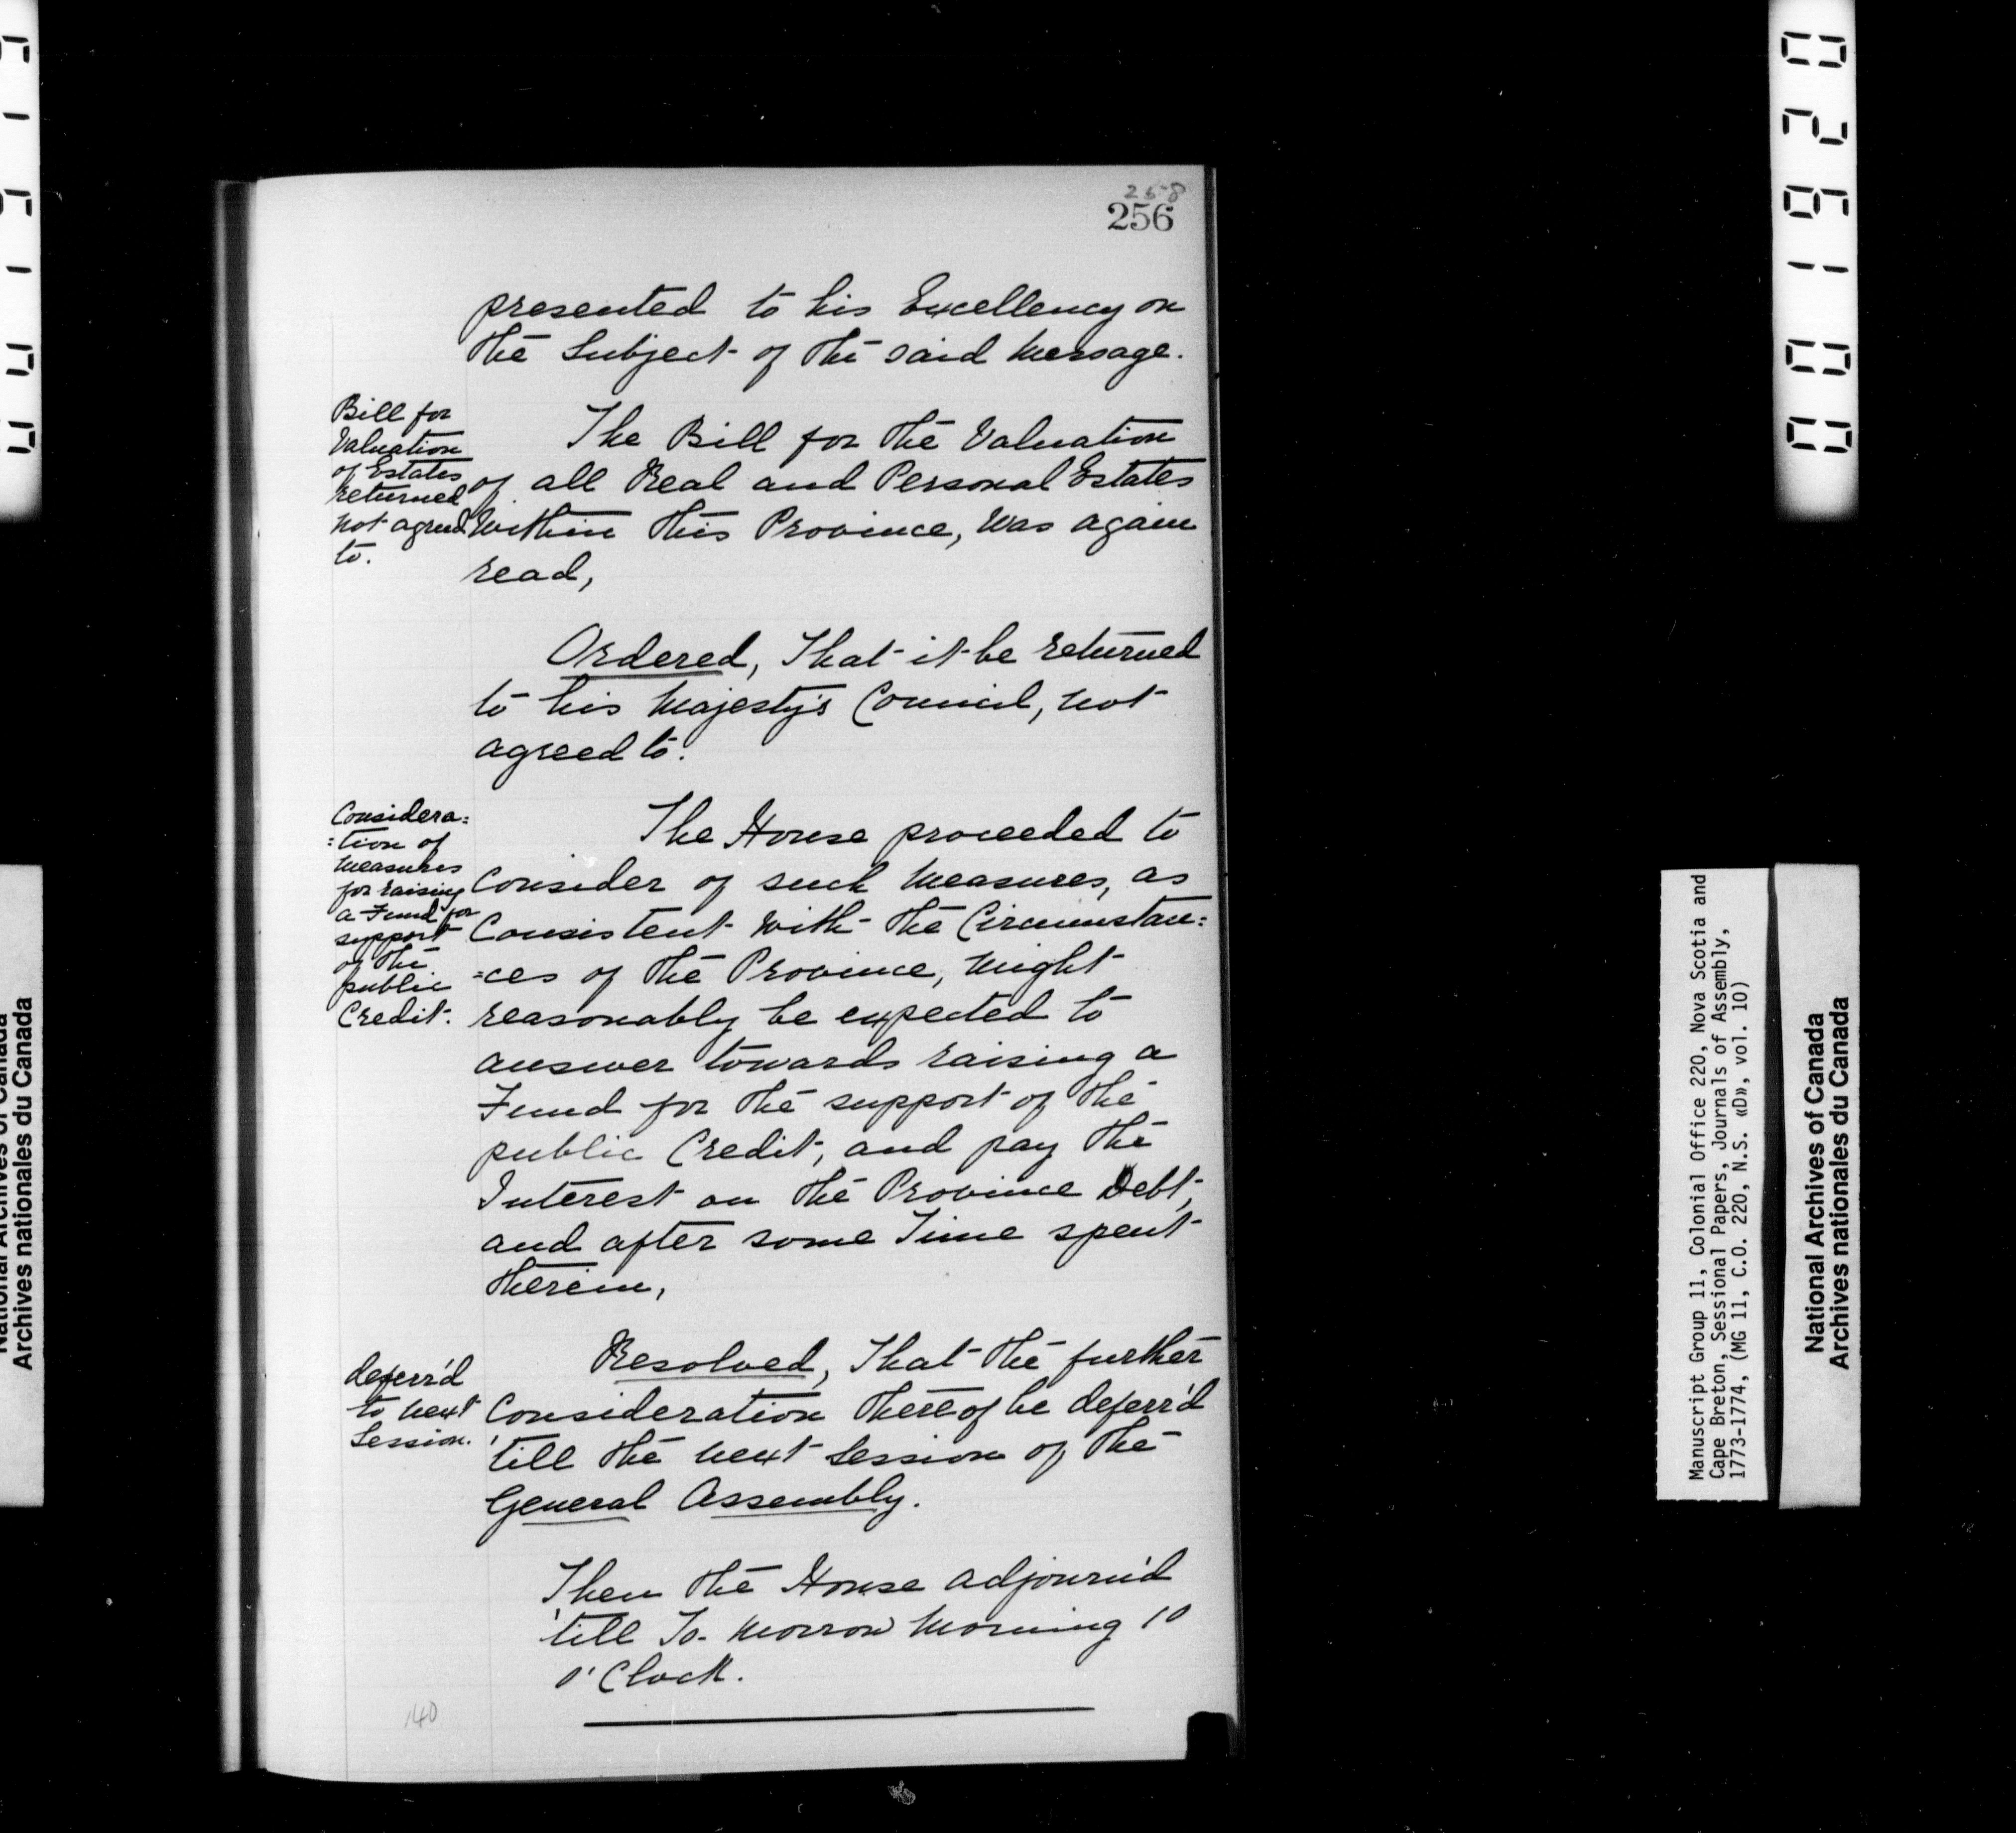 258
256
presented to his Excellency on
the Subject of the said Message.
Bill for
Valuation
of Estates
returned
not agreed
to.
The Bill for the Valuation
of all Real and Personal Estates
within this Province, Was again
read,
Ordered, That it be returned
to his Majesty's Council, not
agreed to.
Considera=
=tion of
Measures
for raising
a Fund for
support
of the
public
Credit.
The House proceeded to
Consider of such Measures, as
Consistent with the Circumstan=
=ces of the Province, might
reasonably be expected to
answer towards raising a
Fund for the support of the
public Credit, and pay the
Interest on the Province Debt,
and after some Time spent
therein,
deferr'd
to next
Session.
Resolved, That the further
Consideration thereof be deferr'd
'till the next Session of the
General Assembly.
Then the House adjourn'd
'till To-morrow Morning 10
O'Clock.
140
0019820
Manuscript Group 11, Colonial Office 220, Nova Scotia and
Cape Breton, Sessional Papers, Journals of Assembly,
1773-1774, (MG 11, C.O. 220, N.S. «D», vol. 10)
National Archives of Canada
Archives nationales du Canada
National Archives of Canada
Archives nationales du Canada